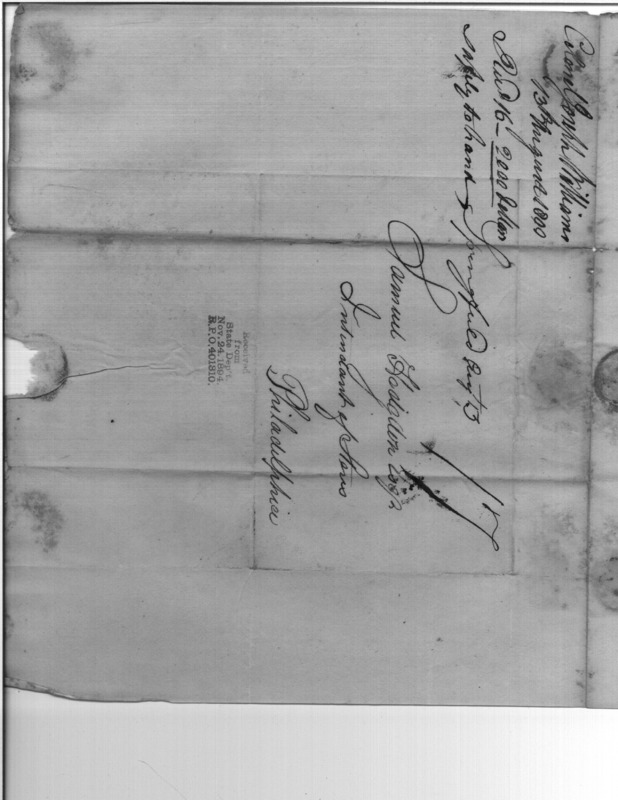 Colonel Joseph Williams
13th August 1800
Recd 16 – 2000 dollars
supply to hand
Springfield Augt 13
Samuel Hodgdon Esqr
Intendant of Stores
Philadelphia
Received
from
State Dept.
Nov. 24, 1894.
R.P.O. 401810.